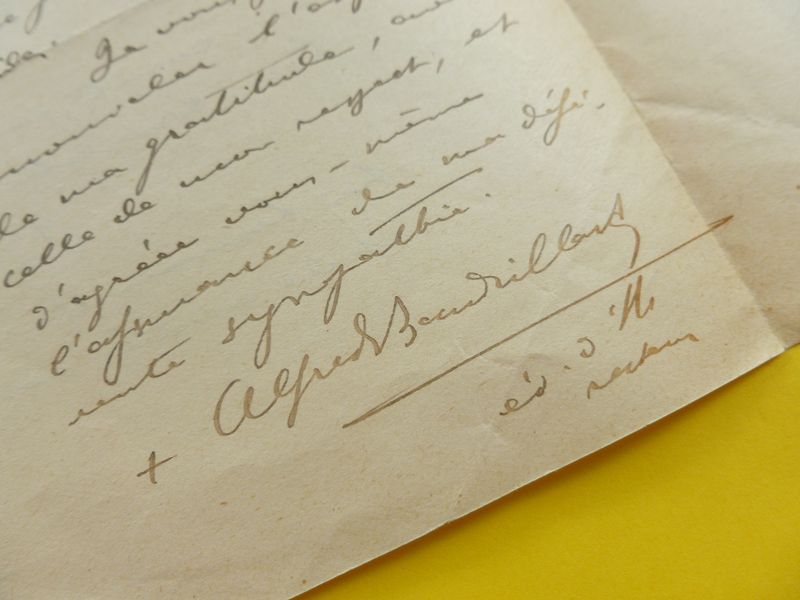 Je vous
gratitude, avec
de ma
celle de mon respect, et
d'agréer vous-même
l'assurance de ma défé-
rente sympathie.
+ Alfred Baudrillart
év. d'H
recteur